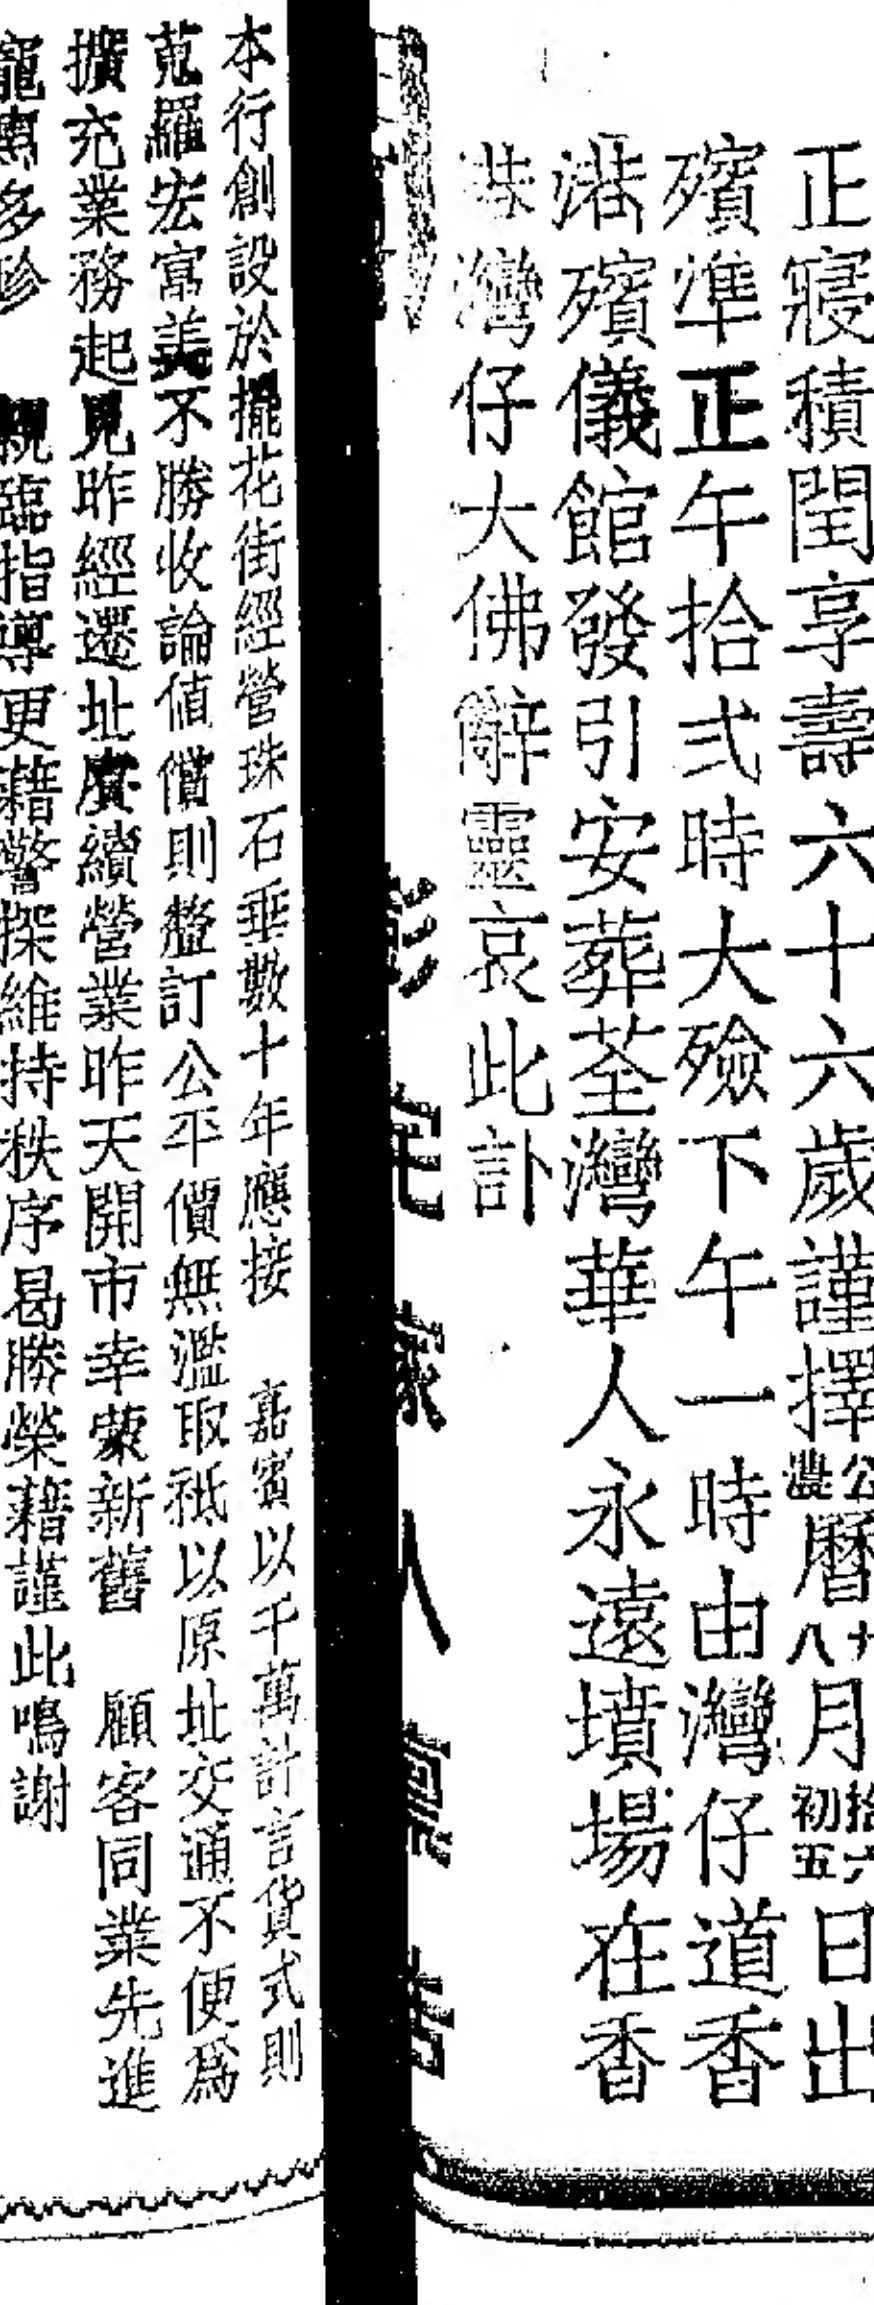 正寢積閏享壽六十六歲謹擇公農曆十八月拾六初五日出
殯準正午拾弍時大殮下午一時由灣仔道香
港殯儀館發引安葬荃灣華人永遠墳場在香
港灣仔大佛辭靈哀此訃
彭宅家人稟告
本行創設於擺花街經營珠石垂數十年應接 嘉賓以千萬計言貨式則
蒐羅宏富美不勝收論值償則釐訂公平價無濫取祗以原址交通不便為
擴充業務起見昨經遷址賡續營業昨天開市幸蒙新舊 顧客同業先進
寵惠多珍 親臨指導更藉警探維持秩序曷勝榮藉謹此鳴謝